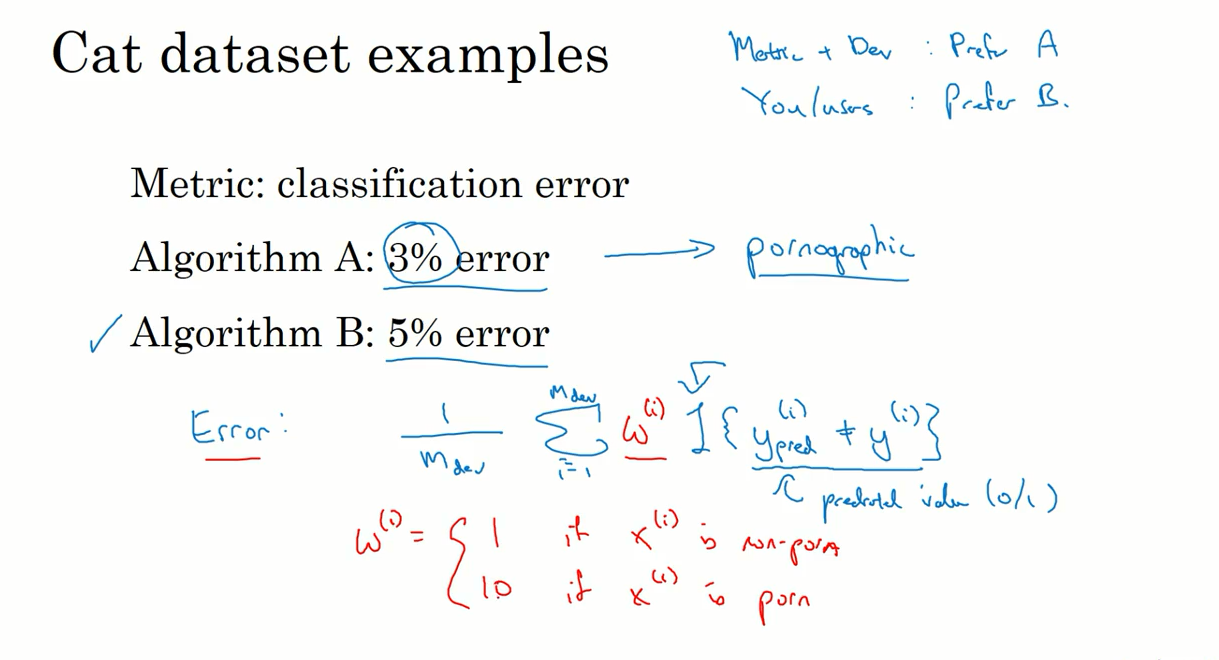 Cat dataset examples
Metric + Dev : Prefer A
You/users : Prefer B.
Metric: classification error
Algorithm A: 3% error → pornographic
✓ Algorithm B: 5% error
Error: 1/m_dev ∑_{i=1}^{m_dev} w^(i) I{y_pred^(i) ≠ y^(i)}
predicted value (0/1)
w^(i) = { 1 if x^(i) is non-porn
10 if x^(i) is porn